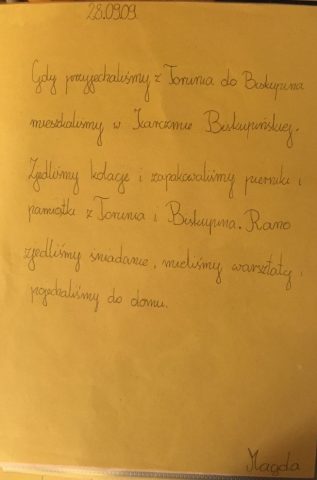 28.09.09.
Gdy przyjechaliśmy z Torunia do Biskupina
mieszkaliśmy w Karczmie Biskupińskiej.
Zjedliśmy kolację i zapakowaliśmy pierniki i
pamiątki z Torunia i Biskupina. Rano
zjedliśmy śniadanie, mieliśmy warsztaty i
pojechaliśmy do domu.
Magda